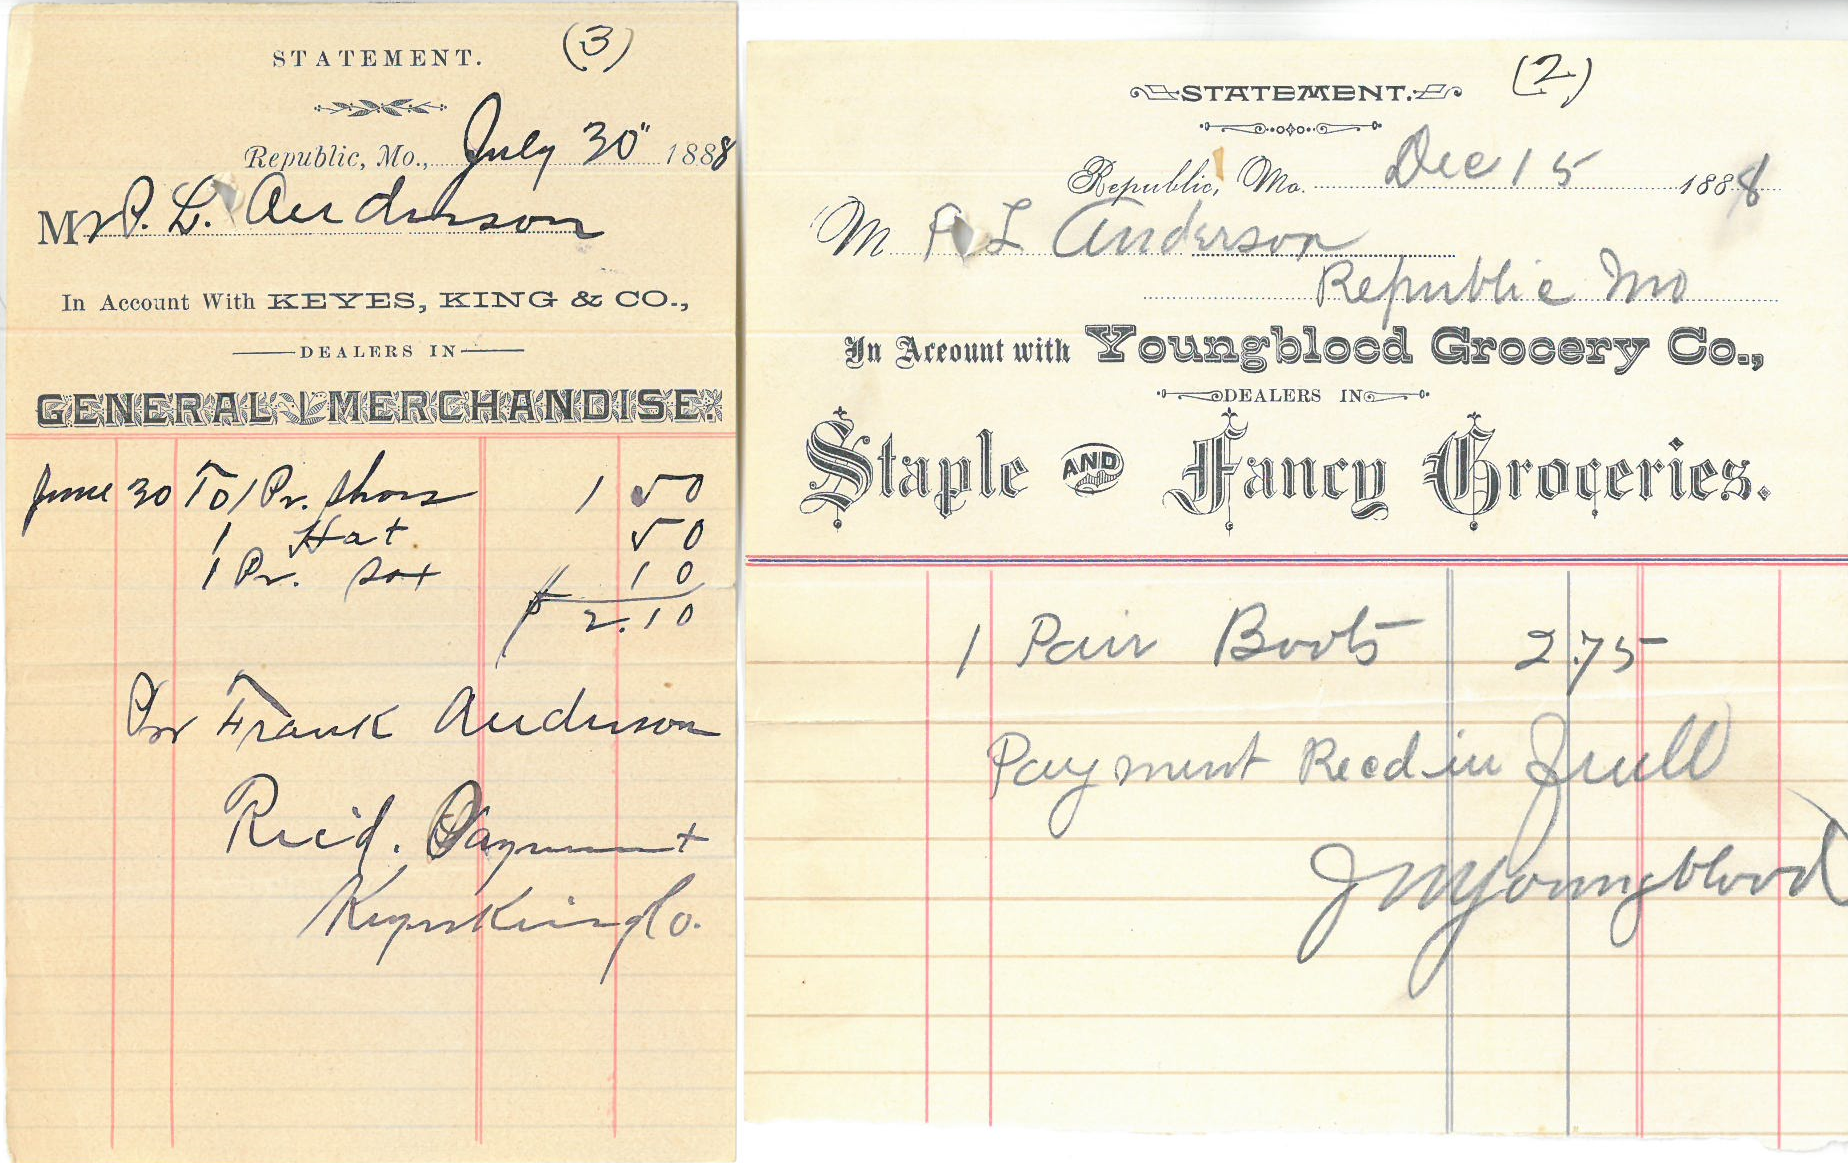 STATEMENT. (3)
Republic, Mo., July 30" 1888
Mr P. L. Anderson
In Account With KEYES, KING & CO.,
DEALERS IN
GENERAL MERCHANDISE.
June 30 To 1 Pr. Shoes 1 50
1 Hat 50
1 Pr. Sox 10
$ 2.10
Per Frank Anderson
Rec'd. Payment
Keyes King Co.
STATEMENT. (2)
Republic, Mo. Dec 15 1888
M P L Anderson
Republic Mo
In Account with Youngblood Grocery Co.,
DEALERS IN
Staple AND Fancy Groceries.
1 Pair Boots 2.75
Payment Recd in Full
J M Youngblood